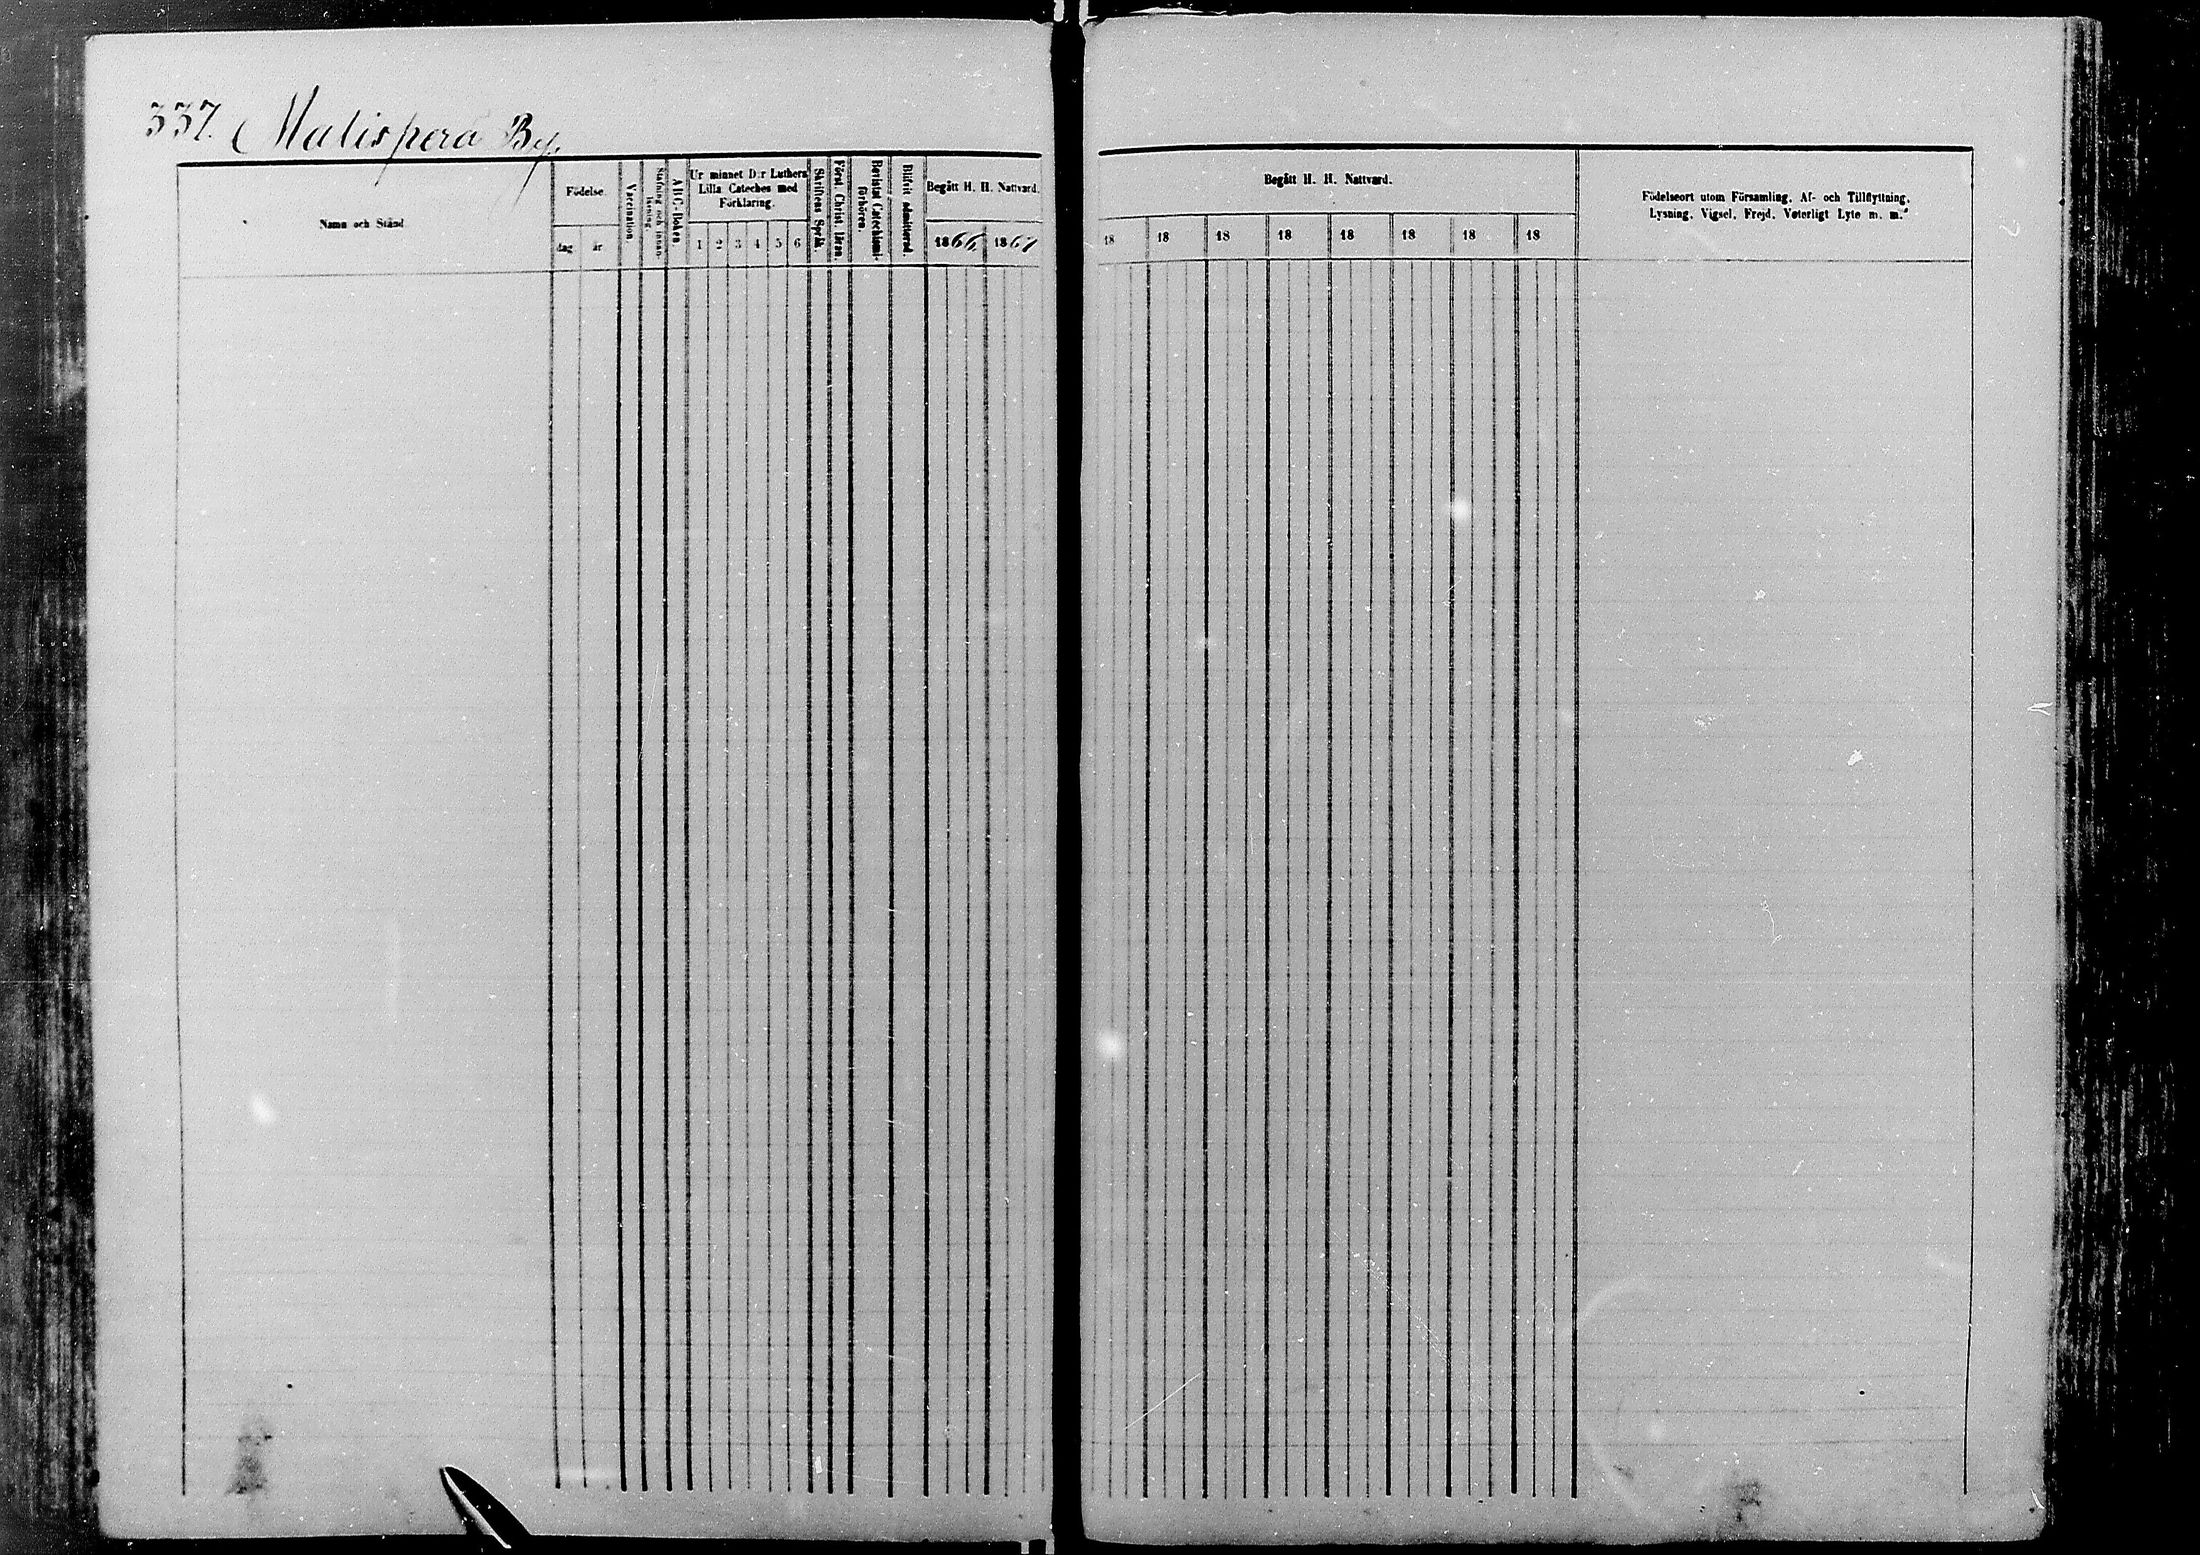 337. Malispera By.
Namn och Stånd
Födelse.
dag
år
Vaccination.
Stafning och innan-
läsning.
ABC-Boken.
Ur minnet D:r Luthers
Lilla Cateches med
Förklaring.
1 2 3 4 5 6
Skriftens Språk.
Först. Christ. läran.
Bevistat Catechismi-
förhören.
Blifvit admitterad.
Begått H. H. Nattvard.
1866 1867
Begått H. H. Nattvard.
18 18 18 18 18 18 18 18
Födelseort utom Församling, Af- och Tillflyttning,
Lysning, Vigsel, Frejd, Veterligt Lyte m. m.